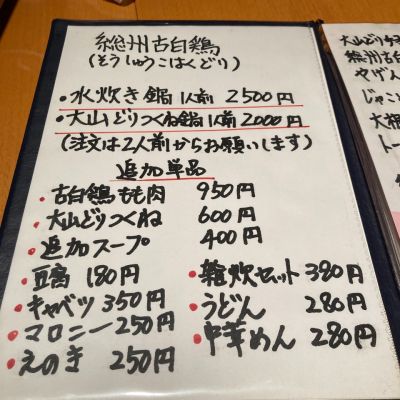 総州古白鶏
(そうしゅうこはくどり)
・水炊き鍋1人前 2500円
・大山どりつくね鍋1人前 2000円
(注文は2人前からお願いします)
追加単品
・古白鶏もも肉 950円
・大山どりつくね 600円
・追加スープ 400円
・豆腐 180円
・キャベツ 350円
・マロニー 250円
・えのき 250円
・雑炊セット 380円
・うどん 280円
・中華めん 280円
大山どり
総州古白
やげん
じゃこ
大根
トー